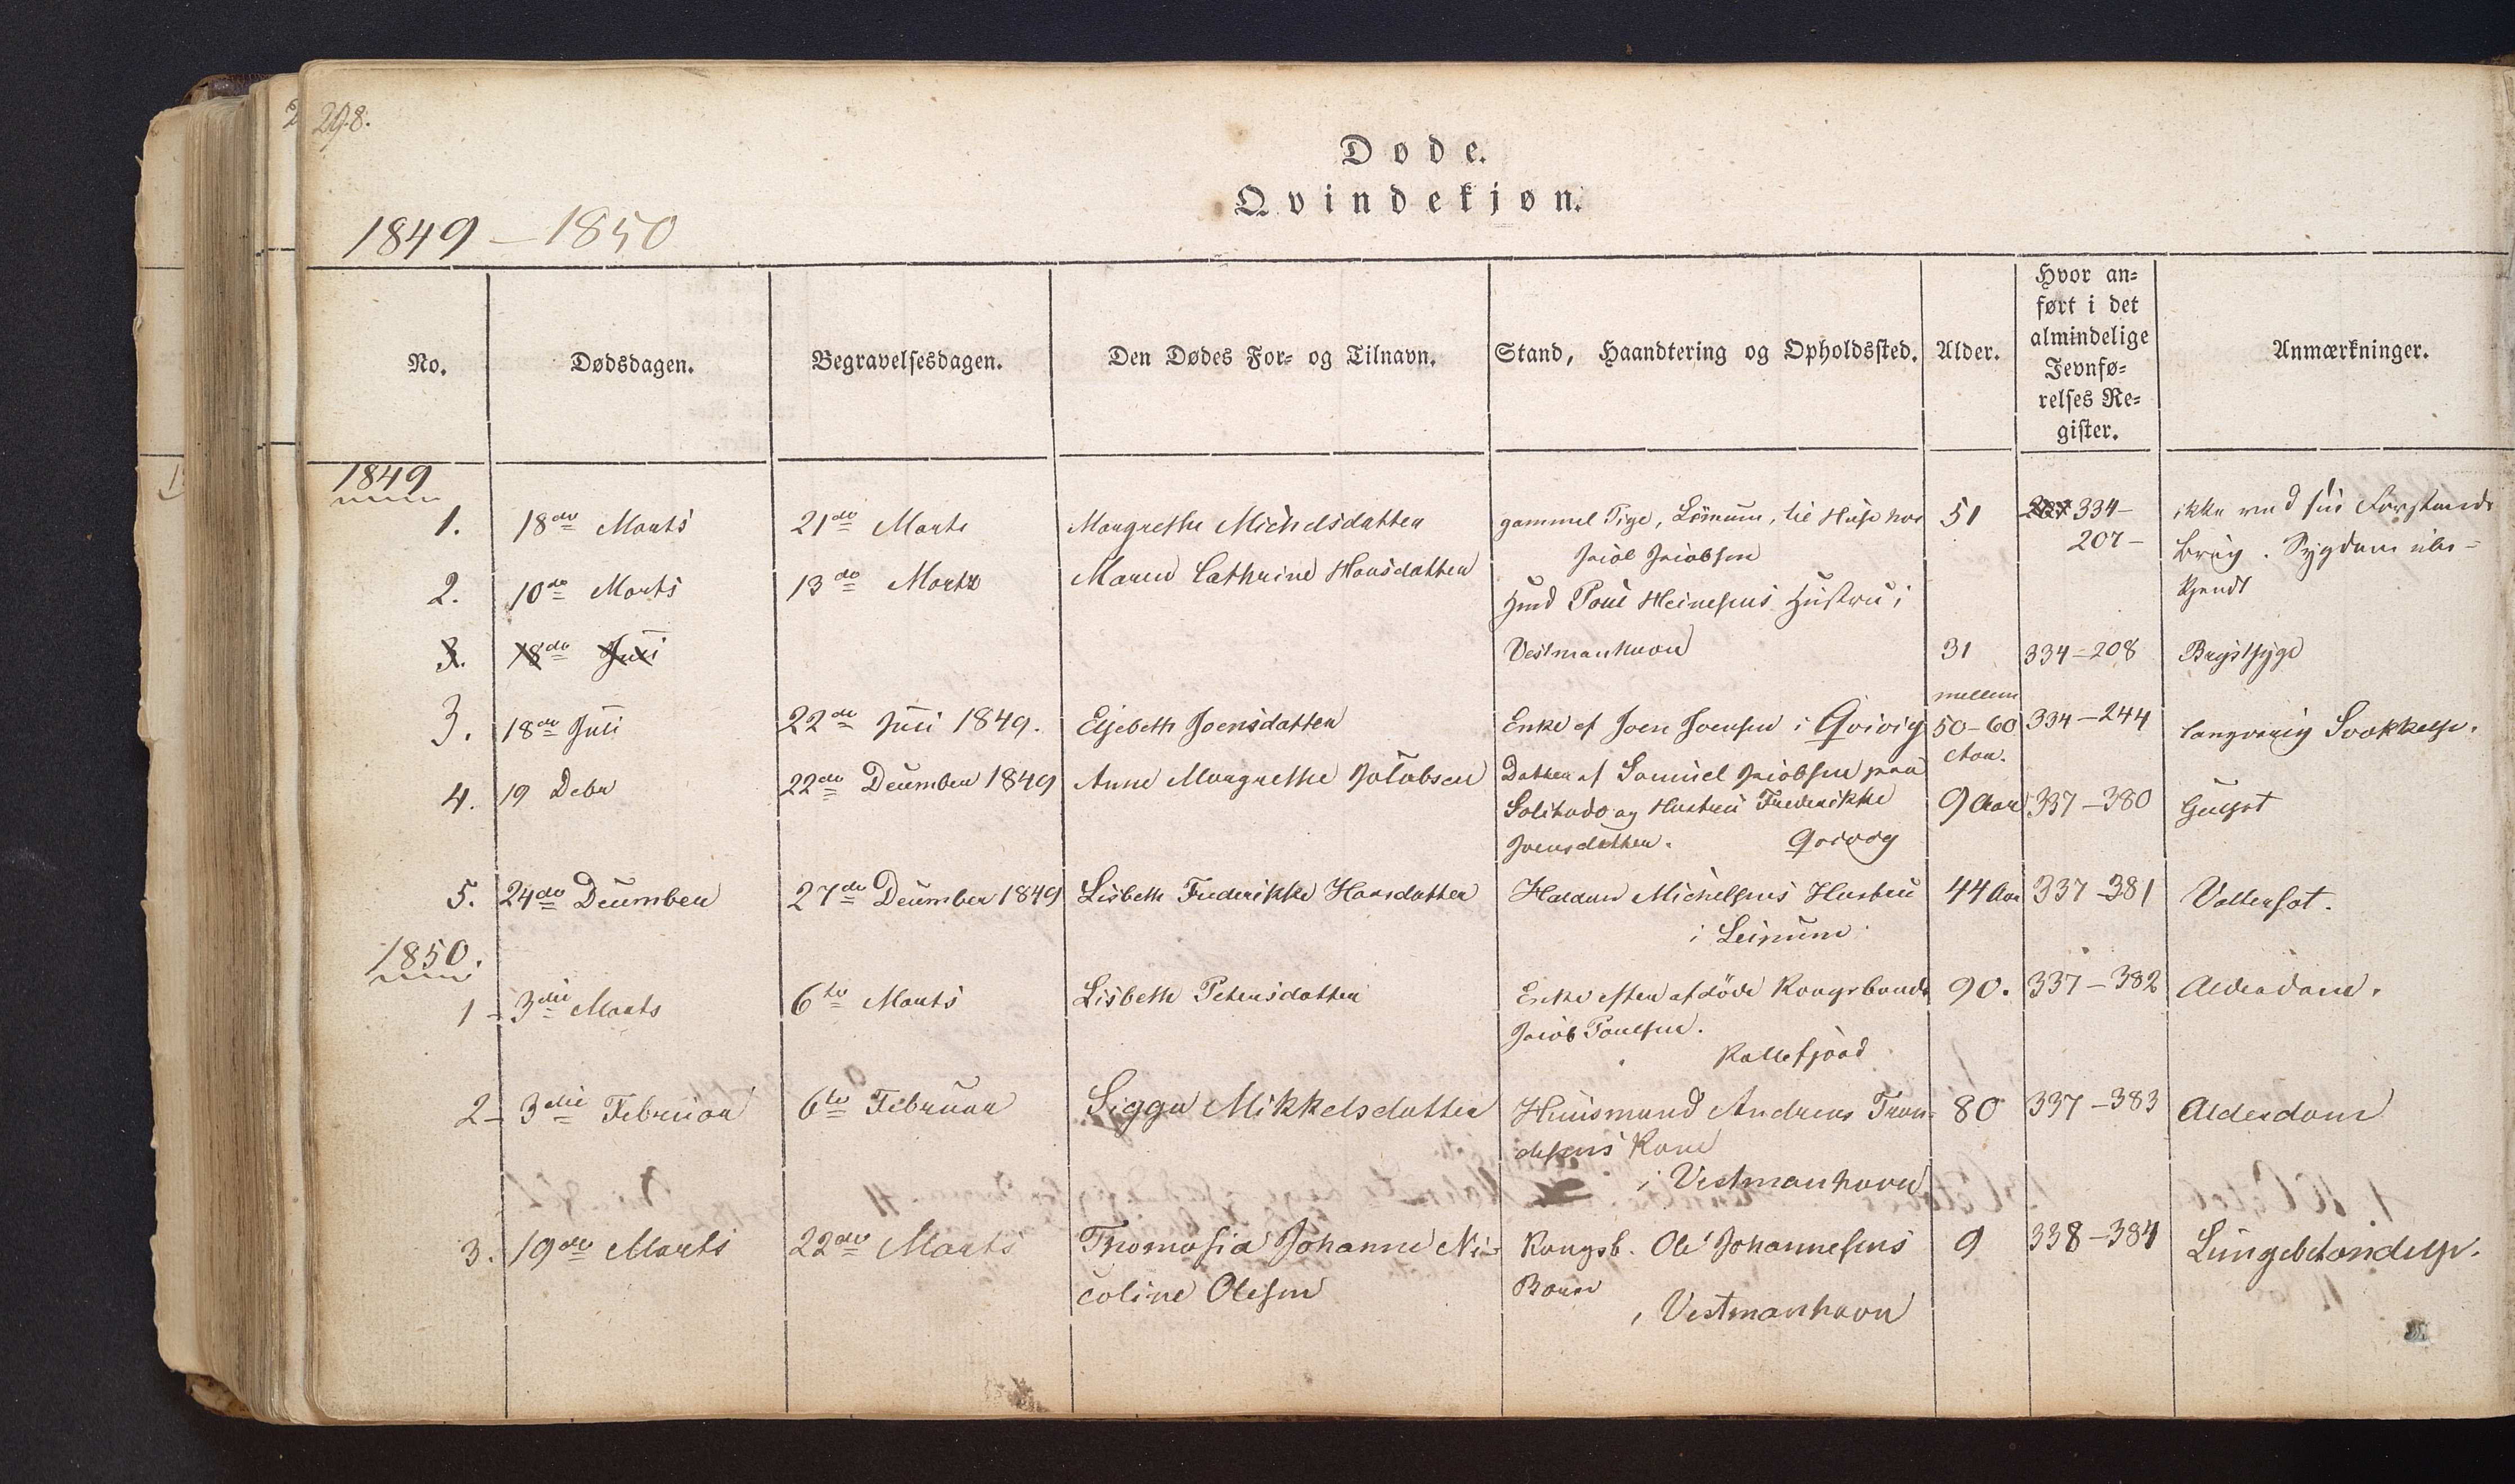 298.
Døde.
Qvindekjøn.
1849 – 1850
No.
Dødsdagen.
Begravelsesdagen.
Den Dødes For- og Tilnavn.
Stand, Haandtering og Opholdssted.
Alder.
Hvor an-
ført i det
almindelige
Jevnfø-
relses Re-
gister.
Anmærkninger.
1849
1. 18de Marts 21de Marts Margrethe Michelsdatter gammel Pige, Leinum, til Huse hos 51 334- ikke ved sin Forstands
Jacob Jacobsen 207- Brug. Sygdom ube-
kjendt
2. 10de Marts 13de Marts Maren Cathrine Hansdatter Hmd Poul Heinesens Hustru i
3. 18de Juli Vestmanhavn 31 334-208 Brystsyge
mellem
3. 18de Juli 22de Juli 1849. Elsebeth Joensdatter Enke af Joen Joensen i Qvivig 50-60 334-244 langvarig Svækkelse.
Aar.
4. 19 Debr 22de December 1849 Anne Margrethe Jacobsen Datter af Samuel Jacobsen paa
Solitudo og Hustru Frederikke 9 Aar 337-380 Guulsot
Joensdatter. Qvivig
5. 24de December 27de December 1849 Lisbeth Frederikke Hansdatter Haldane Michelsens Hustru 44 Aar 337-381 Vattersot.
i Leinum
1850.
1- 3die Marts 6te Marts Lisbeth Petersdatter Enke efter afdøde Kongsbonde 90. 337-382 Alderdom.
Jacob Poulsen.
Kollefjord
2- 3die Februar 6te Februar Sigga Mikkelsdatter Huusmand Andreas Tron- 80 337-383 Alderdom
desens Kone
i Vestmanhavn
3. 19de Marts 22de Marts Thomasia Johanne Ni- Kongsb. Ole Johannesens 9 338-384 Lungebetændelse.
coline Olesen Barn
i Vestmanhavn